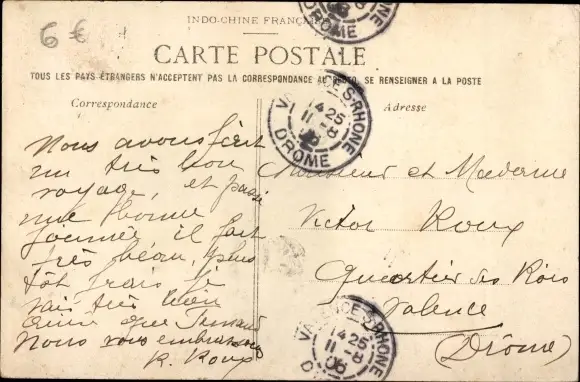 6 €
INDO-CHINE FRANÇAISE
CARTE POSTALE
TOUS LES PAYS ÉTRANGERS N'ACCEPTENT PAS LA CORRESPONDANCE AU RECTO, SE RENSEIGNER A LA POSTE
Correspondance
Nous avons fait
un très bon
voyage, et passé
une bonne
journée il fait
très beau, plus
tôt frais je
vais très bien
que Fernand
Nous vous embrassons
R. Roux
Adresse
Monsieur et Madame
Victor Roux
Quartier des Rois
Valence
(Drôme)
VALENCE-S-RHONE
14 25
11 -8
06
DROME
VALENCE-S-RHONE
14 25
11 -8
06
DROME